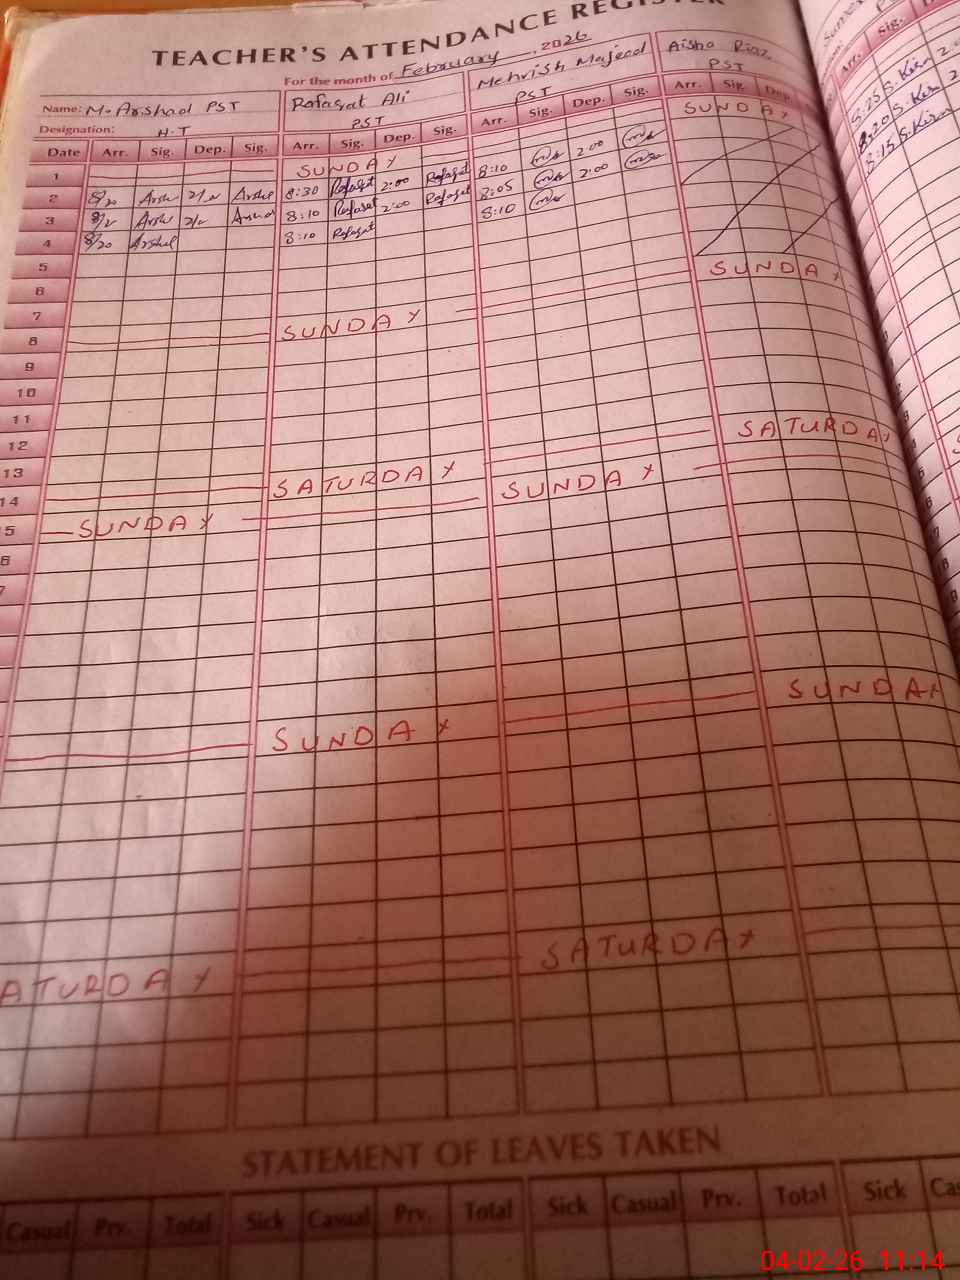 TEACHER'S ATTENDANCE REGISTER
For the month of February, 2026
Name: M. Arshad PST Rafaqat Ali Mehrish Majeed Aisha Riaz
Designation: H.T PST PST PST
Date Arr. Sig. Dep. Sig. Arr. Sig. Dep. Sig. Arr. Sig. Dep. Sig. Arr. Sig. Dep.
1 SUNDAY SUNDAY
2 8/20 Arshd 2/ Arshd 8:30 Rafaqat 2:00 Rafaqat 8:10 2:00
3 Arshd 2/ Arshad 8:10 Rafaqat 2:00 Rafaqat 8:05 2:00
4 8/20 Arshd 8:10 Rafaqat 8:10
5
6
7
8 SUNDAY SUNDAY
9
10
11
12
13
14 SATURDAY SATURDAY
15 SUNDAY SUNDAY
6
7
SUNDAY SUNDAY
SATURDAY SATURDAY
STATEMENT OF LEAVES TAKEN
Casual Prv. Total Sick Casual Prv. Total Sick Casual Prv. Total Sick Cas
Arr. Sig.
8:25 S.Kirn
8:20 S.Kirn
8:15 S.Kiran
04-02-26 11:14